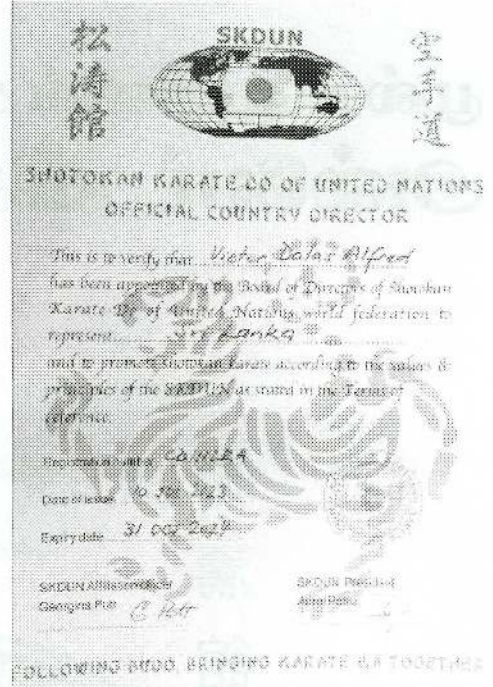 松濤館
SKDUN
空手道
SHOTOKAN KARATE-DO OF UNITED NATIONS
OFFICIAL COUNTRY DIRECTOR
This is to verify that Victor Alfred
has been appointed by the Board of Directors of Shotokan
Karate-Do of United Nations world federation to
represent Sri Lanka
and to promote shotokan karate according to the values &
principles of the SKDUN as stated in the Terms of
reference.
Registration number
Date of issue
Expiry date 31 Oct
SKDUN Admission officer
Georgina Putt
SKDUN President
FOLLOWING BUDO, BRINGING KARATE-KA TOGETHER